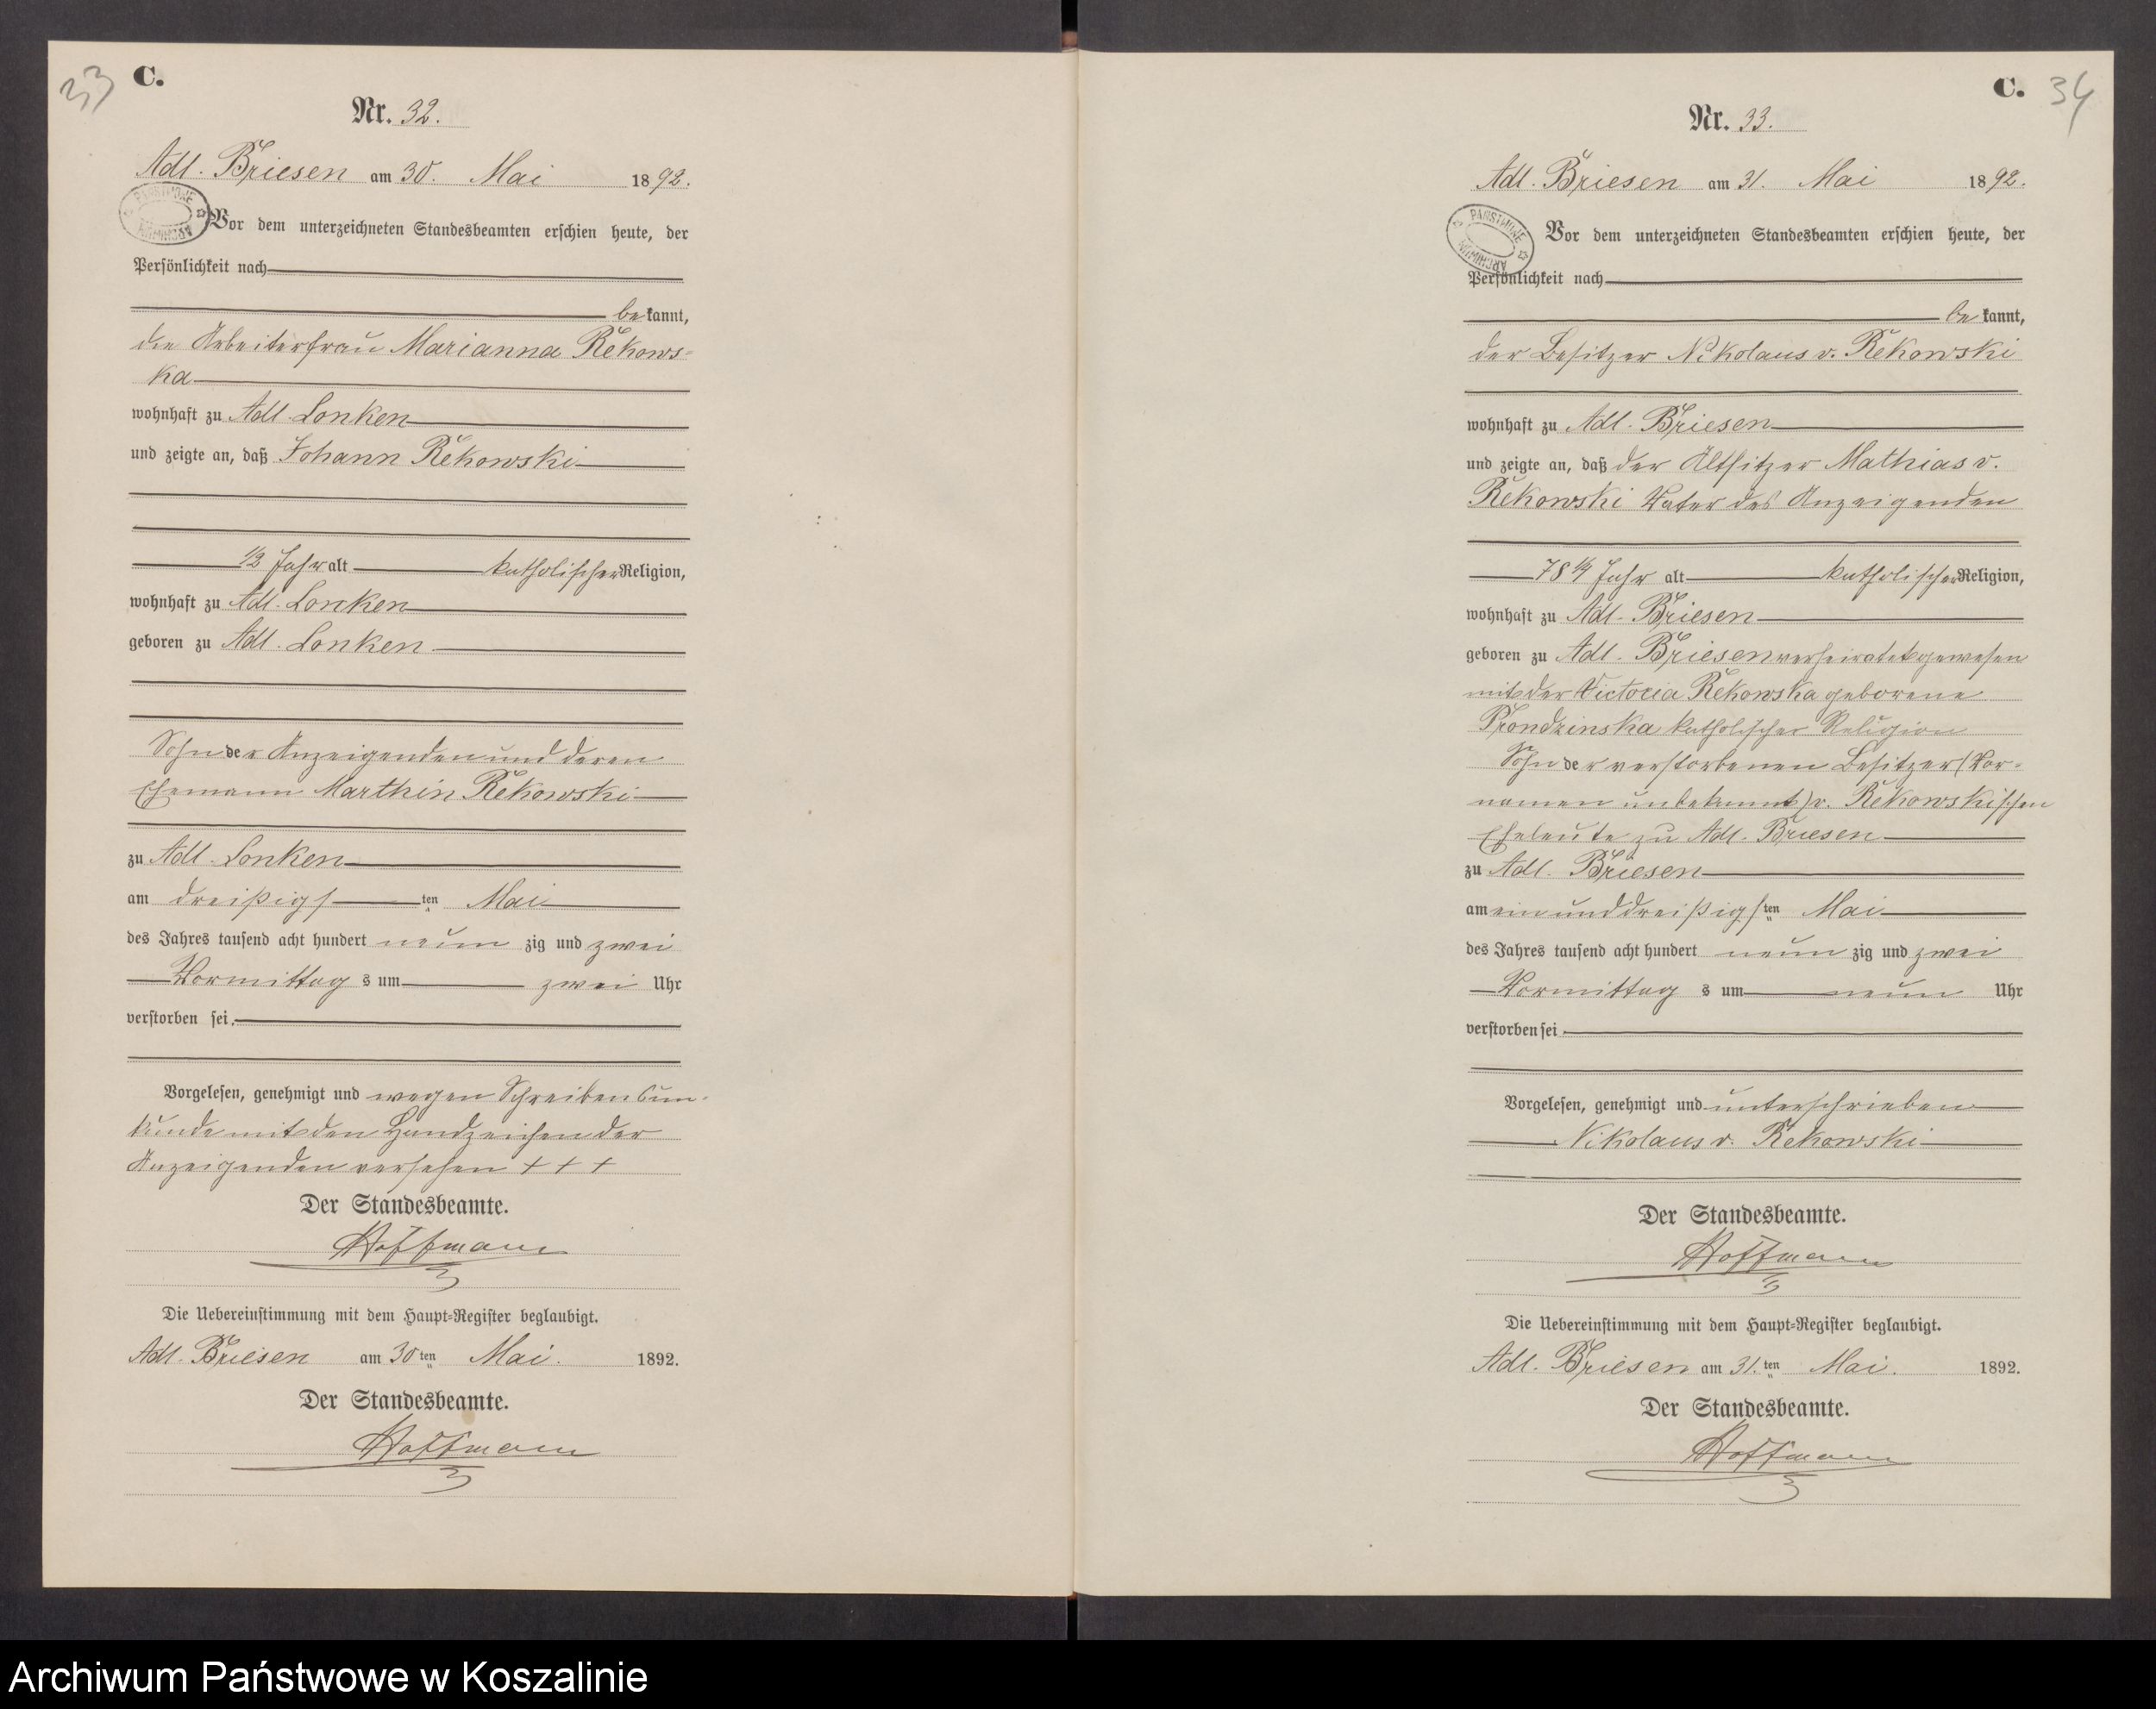 33
C.
Nr. 32.
Adl. Briesen am 30. Mai 1892.
Vor dem unterzeichneten Standesbeamten erschien heute, der
Persönlichkeit nach
bekannt,
die Arbeiterfrau Marianna Rekows-
ka
wohnhaft zu Adl. Lonken
und zeigte an, daß Johann Rekowski
1/2 Jahr alt katholischer Religion,
wohnhaft zu Adl. Lonken
geboren zu Adl. Lonken
Sohn der Anzeigenden und deren
Ehemann Marthin Rekowski
zu Adl. Lonken
am dreißigsten Mai
des Jahres tausend acht hundert neunzig und zwei
Vormittags um zwei Uhr
verstorben sei.
Vorgelesen, genehmigt und wegen Schreibensun-
kunde mit den Handzeichen der
Anzeigenden versehen + + +
Der Standesbeamte.
Hoffmann
Die Uebereinstimmung mit dem Haupt-Register beglaubigt.
Adl. Briesen am 30ten Mai. 1892.
Der Standesbeamte.
Hoffmann
C. 34
Nr. 33.
Adl. Briesen am 31. Mai 1892.
PAŃSTWOWE ARCHIWUM
Vor dem unterzeichneten Standesbeamten erschien heute, der
Persönlichkeit nach
bekannt,
der Besitzer Nikolaus v. Rekowski
wohnhaft zu Adl. Briesen
und zeigte an, daß der Altsitzer Mathias v.
Rekowski Vater des Anzeigenden
78 1/4 Jahr alt katholischer Religion,
wohnhaft zu Adl. Briesen
geboren zu Adl. Briesen verheiratet gewesen
mit der Victoria Rekowska geborene
Prondzinska katholischer Religion
Sohn der verstorbenen Besitzer (Vor-
namen unbekannt) v. Rekowski'schen
Eheleute zu Adl. Briesen
zu Adl. Briesen
am einunddreißigsten Mai
des Jahres tausend acht hundert neunzig und zwei
Vormittags um neun Uhr
verstorben sei
Vorgelesen, genehmigt und unterschrieben
Nikolaus v. Rekowski
Der Standesbeamte.
Hoffmann
Die Uebereinstimmung mit dem Haupt-Register beglaubigt.
Adl. Briesen am 31.ten Mai. 1892.
Der Standesbeamte.
Hoffmann
Archiwum Państwowe w Koszalinie